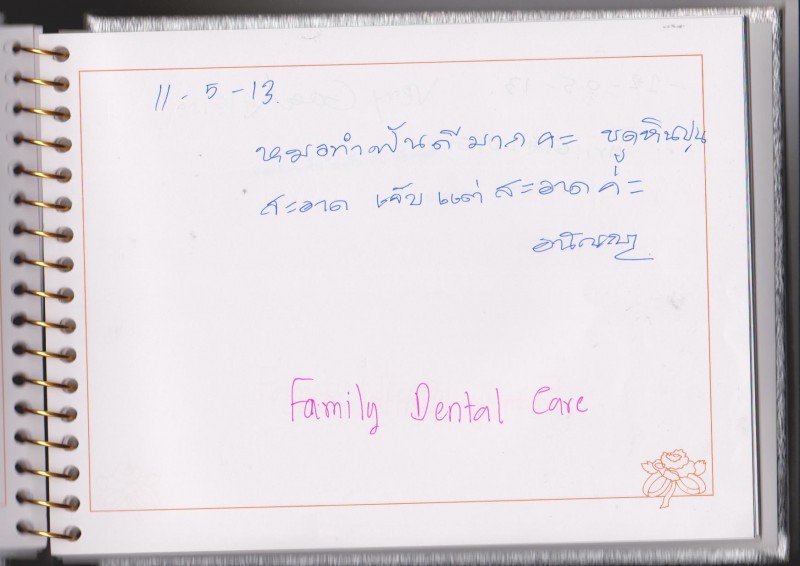 11-5-13.
หมอทำฟันดีมาก คะ ขูดหินปูน
สะอาด เจ็บ แต่ สะอาด ค่ะ
Family Dental Care